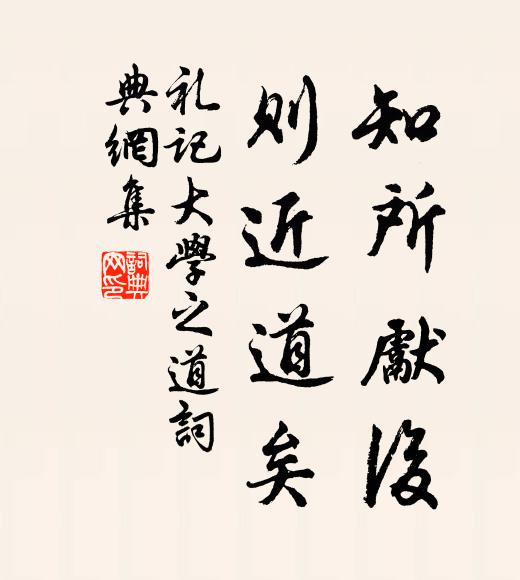 知所獻後
則近道矣
礼記大學之道詞
典網集
詞典网印